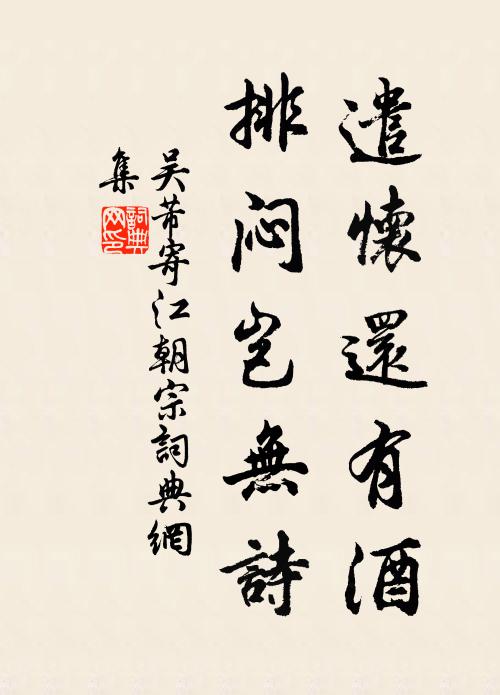 遣懷還有酒
排悶豈無詩
吴芾寄江朝宗詞典網
集
詞典
网印